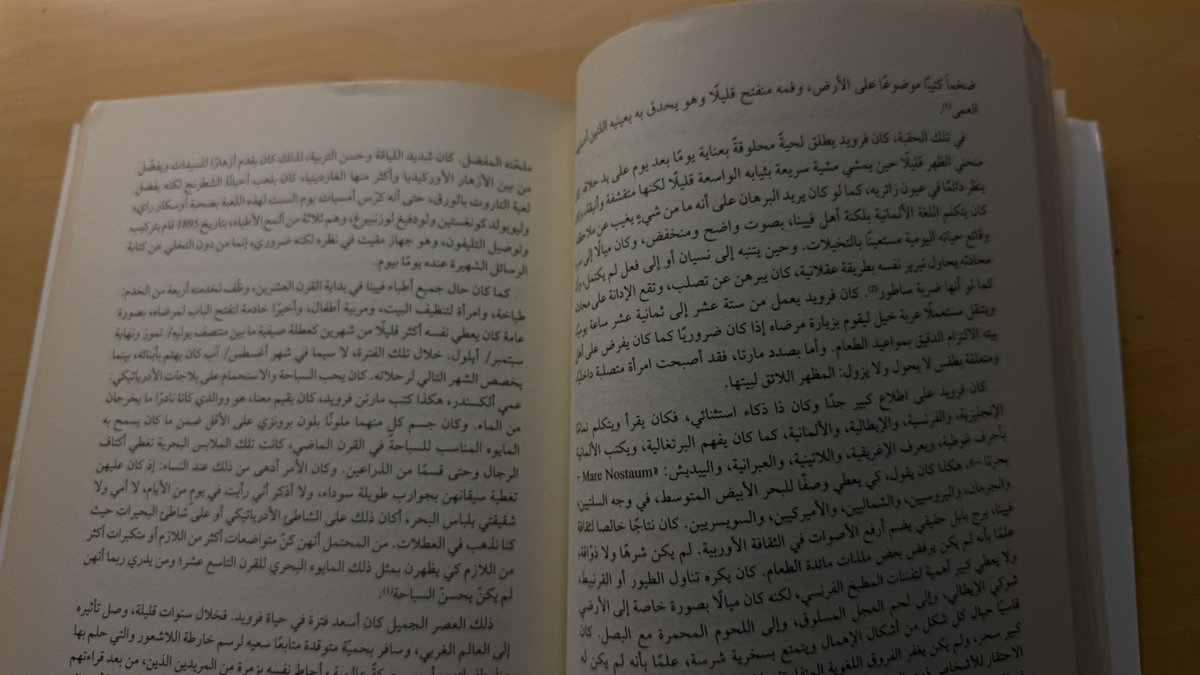 ضخماً كئيبًا موضوعًا على الأرض، وفمه منفتح قليلًا وهو يحدق به بعينيه اللتين
العمى(1).
في تلك الحقبة، كان فرويد يطلق لحيةً محلوقةً بعناية يومًا بعد يوم على يد حلاقه
منحني الظهر قليلًا حين يمشي مشية سريعة بثيابه الواسعة قليلًا لكنها متقشفة وأنيقة،
ينظر دائمًا في عيون زائريه، كما لو كان يريد البرهان على أنه ما من شيءٍ يغيب عن
كان يتكلم اللغة الألمانية بلكنة أهل فيينا، بصوت واضح ومنخفض، وكان ميالًا إلى
وقائع حياته اليومية مستعينًا بالتخيلات. وحين يتنبه إلى نسيان أو إلى فعل لم يكتمل،
محادثه يحاول تبرير نفسه بطريقة عقلانية، كان يبرهن عن تصلب، وتقع الإدانة على
كما لو أنها ضربة ساطور(2). كان فرويد يعمل من ستة عشر إلى ثمانية عشر ساعة يوميًا،
ويتنقل مستعملًا عربة خيل ليقوم بزيارة مرضاه إذا كان ضروريًا كما كان يفرض على أهل
بيته الالتزام الدقيق بمواعيد الطعام. وأما بصدد مارتا، فقد أصبحت امرأة متصلبة داخليًا
ومتعلقة بطقس لا يحول ولا يزول: المظهر اللائق لبيتها.
كان فرويد على اطلاع كبير جدًا وكان ذا ذكاء استثنائي، فكان يقرأ ويتكلم تمامًا
الإنجليزية، والفرنسية، والإيطالية، والألمانية، كما كان يفهم البرتغالية، ويكتب الألمانية
بأحرف غوطية، ويعرف الإغريقية، واللاتينية، والعبرانية، والييديش: «Mare Nostaum -
بحرنا -»، هكذا كان يقول، كي يعطي وصفًا للبحر الأبيض المتوسط، في وجه السلتيين،
والجرمان، والبروسيين، والشماليين، والأميركيين، والسويسريين. كان نتاجًا خالصا لثقافة
فيينا، برج بابل حقيقي يضم أرفع الأصوات في الثقافة الأوربية. لم يكن شرهًا ولا ذواقة،
علمًا بأنه لم يكن يرفض بعض ملذات مائدة الطعام. كان يكره تناول الطيور أو القرنبيط،
ولا يعطي كبير أهمية لتفننات المطبخ الفرنسي، لكنه كان ميالًا بصورة خاصة إلى الأرضي
شوكي الإيطالي، وإلى لحم العجل المسلوق، وإلى اللحوم المحمرة مع البصل. كان
قاسيًا حيال كل شكل من أشكال الإهمال ويتمتع بسخرية شرسة، علمًا بأنه لم يكن له
كبير سحر، ولم يكن يغفر الفروق اللغوية
الاحتقار للأشخاص
ملحّنه المفضل. كان شديد اللياقة وحسن التربية، لذلك كان يقدم أزهارًا للسيدات ويفضّل
من بين الأزهار الأوركيديا وأكثر منها الغاردينيا، كان يلعب أحيانًا الشطرنج لكنه يفضل
لعبة التاروت بالورق، حتى أنه كرّس أمسيات يوم السبت لهذه اللعبة بصحبة أوسكار راي،
وليوبولد كونغستين ولودفيغ لوزنبيرغ، وهم ثلاثة من ألمع الأطباء، بتاريخ 1895 قام بتركيب
وتوصيل التليفون، وهو جهاز مقيت في نظره لكنه ضروري، إنما من دون التخلي عن كتابة
الرسائل الشهيرة عنده يومًا بيوم.
كما كان حال جميع أطباء فيينا في بداية القرن العشرين، وظّف لخدمته أربعة من الخدم:
طباخة، وامرأة لتنظيف البيت، ومربية أطفال، وأخيرًا خادمة لتفتح الباب لمرضاه، بصورة
عامة كان يعطي نفسه أكثر قليلًا من شهرين كعطلة صيفية ما بين منتصف يوليه/ تموز ونهاية
سبتمبر/ أيلول. خلال تلك الفترة، لا سيما في شهر أغسطس/ آب كان يهتم بأبنائه، بينما
يخصص الشهر التالي لرحلاته. كان يحب السباحة والاستحمام على بلاجات الأدرياتيكي:
عمي ألكسندر، هكذا كتب مارتن فرويد، كان يقيم معنا، هو ووالدي كانا نادرًا ما يخرجان
من الماء. وكان جسم كلٍ منهما ملونًا بلون برونزي على الأقل ضمن ما كان يسمح به
المايوه المناسب للسباحة في القرن الماضي، كانت تلك الملابس البحرية تغطي أكتاف
الرجال وحتى قسمًا من الذراعين. وكان الأمر أدهى من ذلك عند النساء: إذ كان عليهن
تغطية سيقانهن بجوارب طويلة سوداء، ولا أذكر أني رأيت في يوم من الأيام، لا أمي ولا
شقيقتي بلباس البحر، أكان ذلك على الشاطئ الأدرياتيكي أو على شاطئ البحيرات حيث
كنا نذهب في العطلات. من المحتمل أنهن كنّ متواضعات أكثر من اللازم أو متكبرات أكثر
من اللازم كي يظهرن بمثل ذلك المايوه البحري للقرن التاسع عشر؛ ومن يدري ربما أنهن
لم يكنّ يحسنّ السباحة(1).
ذلك العصر الجميل كان أسعد فترة في حياة فرويد. فخلال سنوات قليلة، وصل تأثيره
إلى العالم الغربي، وسافر بحميّة متوقدة متابعًا سعيه لرسم خارطة اللاشعور والتي حلم بها
حركةً عالمية وأحاط نفسه بزمرة من المريدين الذين، من بعد قراءتهم